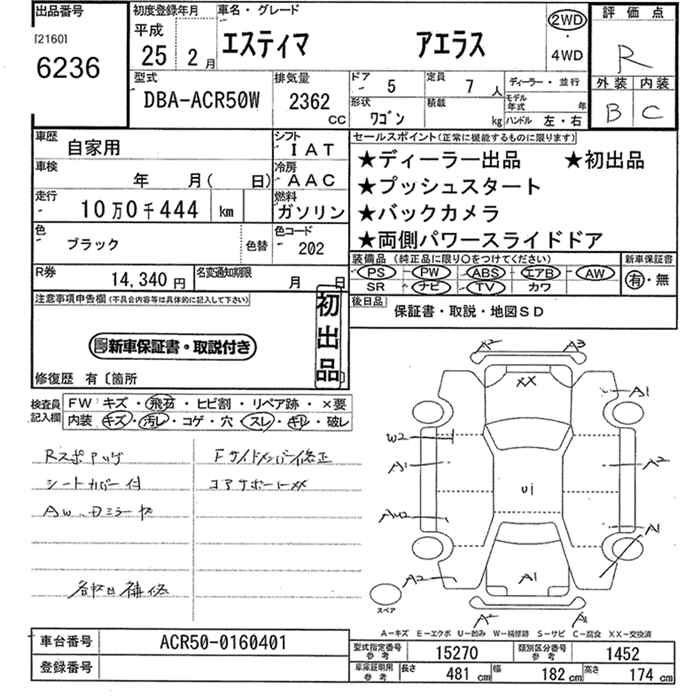 出品番号
[2160]
6236
初度登録年月
平成
25 2月
車名・グレード
エスティマ アエラス
2WD
・
4WD
評価点
R
外装 内装
B C
型式
DBA-ACR50W
排気量
2362
CC
ドア 5
定員 7 人
形状 ワゴン
積載 kg
ディーラー・並行
モデル年式 年
ハンドル 左・右
車歴 自家用
シフト IAT
車検 年 月( 日)
冷房 AAC
走行 10万0千444 km
燃料 ガソリン
色 ブラック 色替
色コード 202
R券 14,340円
名変通知期限 月 日
セールスポイント(正常に機能するものに限ります)
★ディーラー出品 ★初出品
★プッシュスタート
★バックカメラ
★両側パワースライドドア
装備品(純正品に限り○をつけてください)
PS PW ABS エアB AW
SR ナビ TV カワ
新車保証書
有・無
後日品 保証書・取説・地図SD
注意事項申告欄(不具合内容等は具体的に記入して下さい)
初出品
新車保証書・取説付き
修復歴 有〔箇所 〕
検査員記入欄
FW キズ・飛石・ヒビ割・リペア跡・×要
内装 キズ・汚レ・コゲ・穴・スレ・キレ・破レ
Rスポアッグ
シートカバー付
AW、Dミラーキズ
Fサイドメンバー修正
コアサポートXX
各所凹補修
A2 A3
XX
A1
W2
A1
A2
U1
AW2
A1
A2
A1
A2 A1
スペア
A-キズ E-エクボ U-凹み W-補修跡 S-サビ C-腐食 XX-交換済
車台番号 ACR50-0160401
登録番号
型式指定番号 参考 15270
類別区分番号 参考 1452
車庫証明用 参考 長さ 481 cm 幅 182 cm 高さ 174 cm